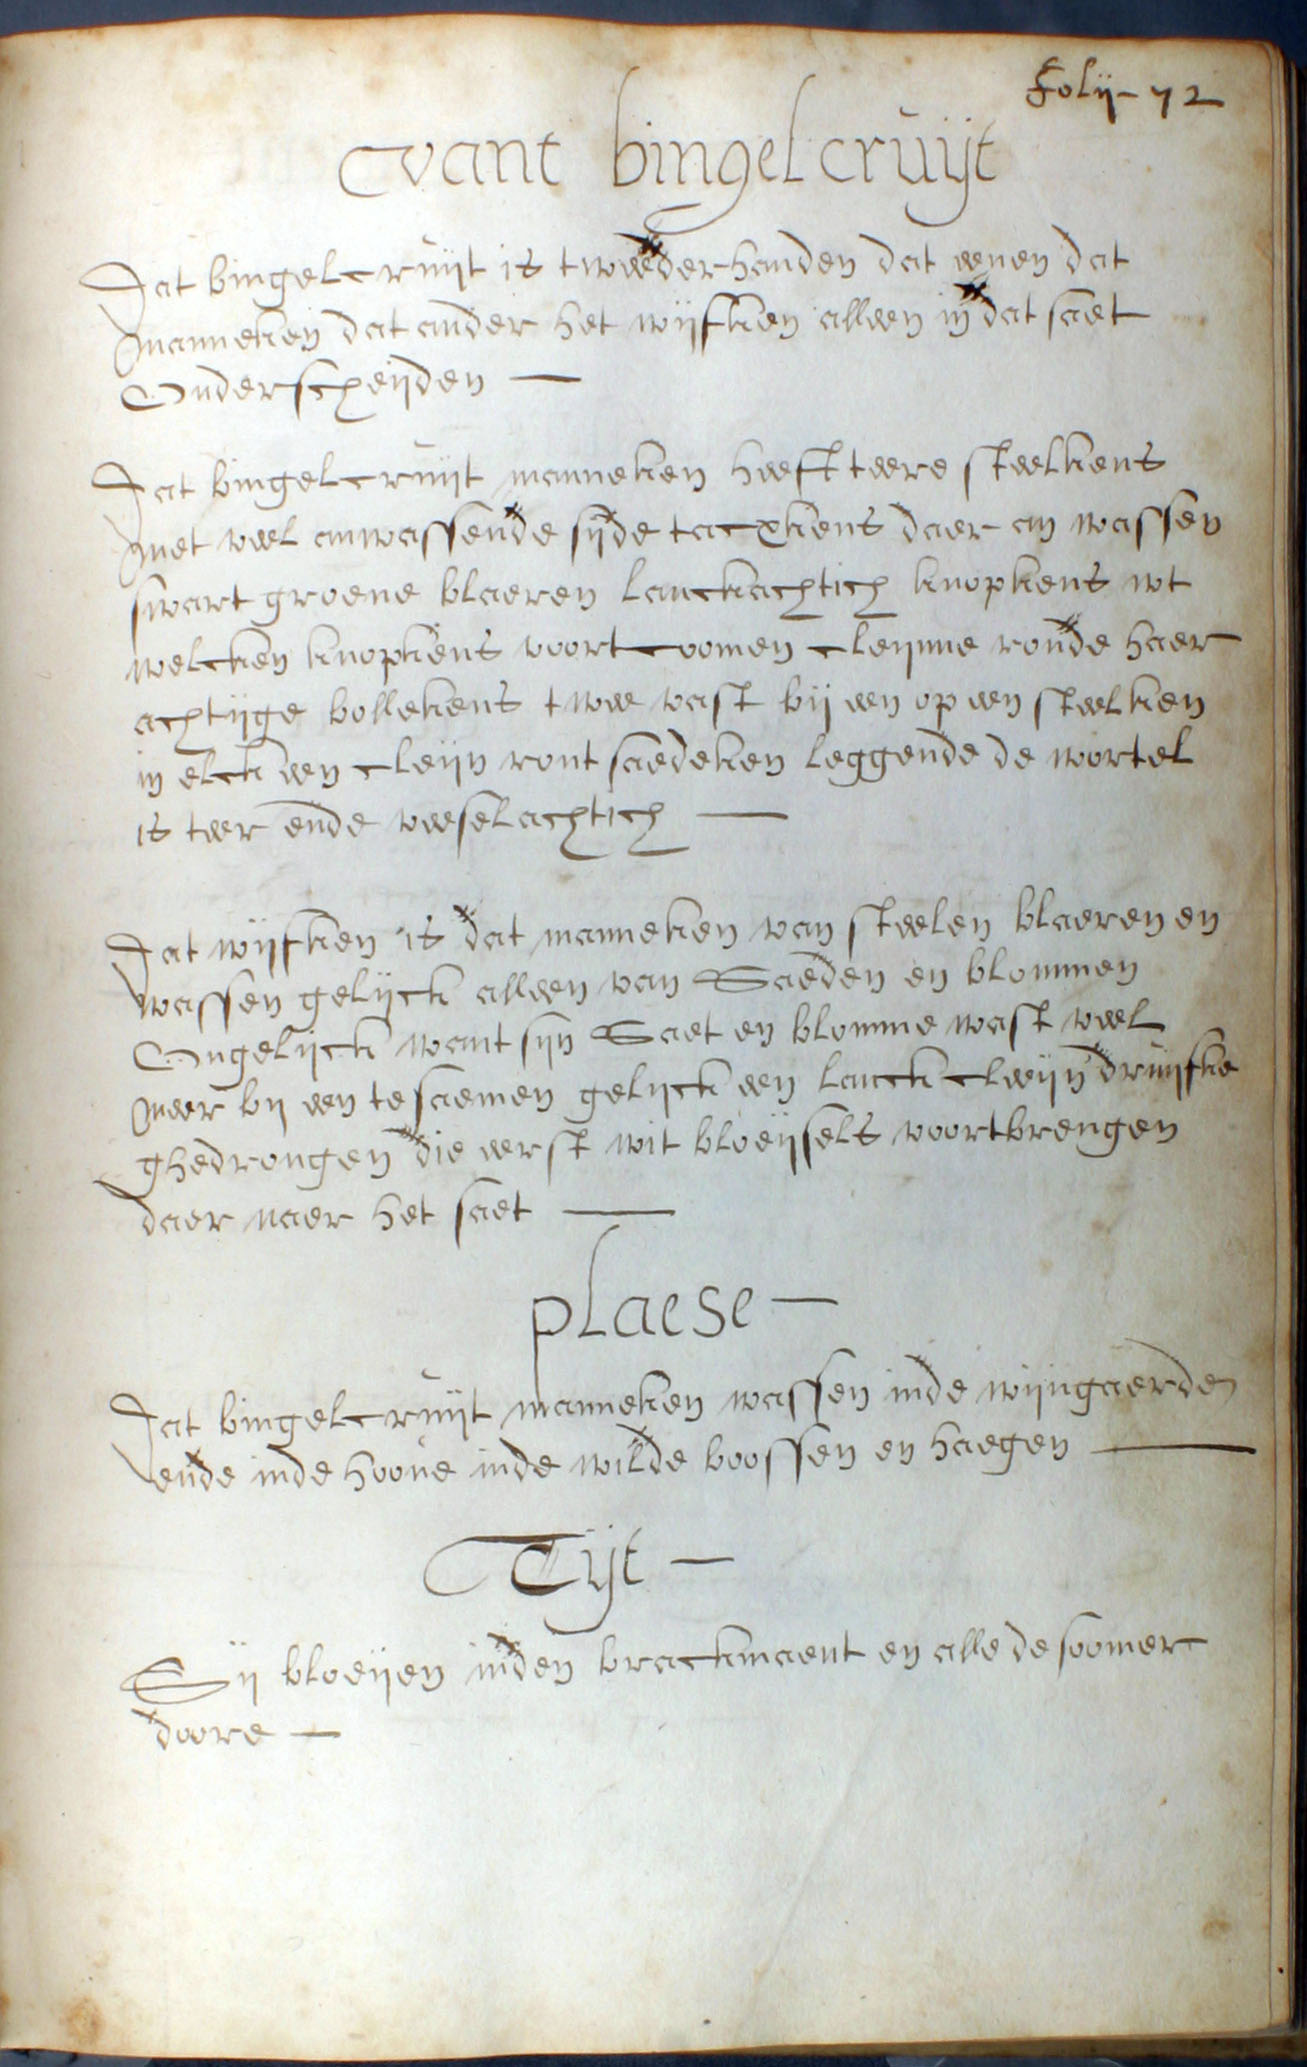 Folij - 72
vant bingelcruijt
Dat bingelcruijt is tweederhanden dat eenen dat
manneken dat ander het wijfken alleen in dat saet
Onderscheijden —
Dat bingelcruijt manneken heeft teere steelkens
met veel anwassende sijde tacxkens daer an wassen
swart groene blaeren lanckachtich knopkens wt
welcken knopkens voort coomen cleijnne ronde haer
achtijge bollekens twee vast bij een op een steelken
in elck een cleijn ront saedeken leggende de wortel
is teer ende veeselachtich —
Dat wijfken is dat manneken van steelen blaeren en
wassen gelijck alleen van Saeden en blommen
Ongelijck want sijn Saet en blomme wast veel
meer bij een te saemen gelijck een lanck cleijn druijfke
ghedrongen die eerst wit bloeijsels voortbrengen
daer naer het saet —
plaese —
Dat bingelcruijt manneken wassen inde wijngaerden
ende inde hoove inde wilde boossen en haegen —
Tijt —
Sij bloeijen inden brackmaent en alle de soomer
doore —